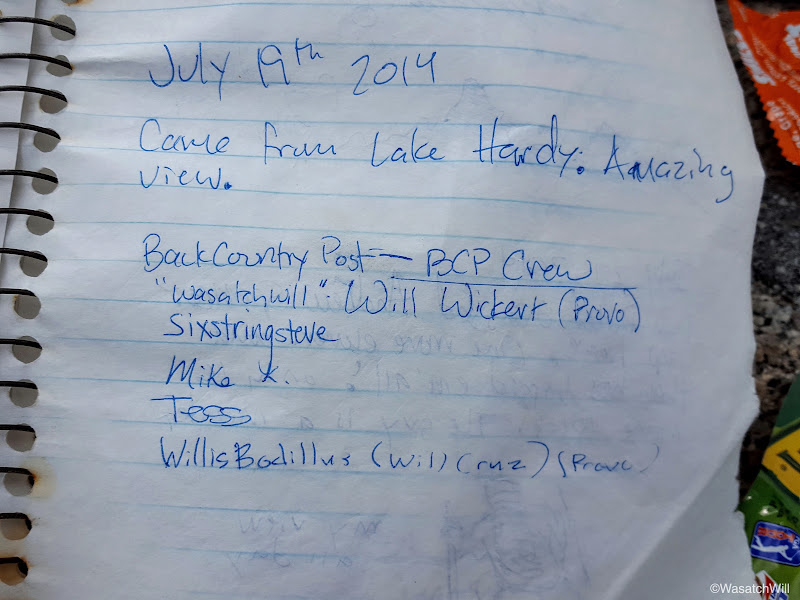 July 19th 2014
Came from Lake Hardy. Amazing
view.
BackCountry Post — BCP Crew
"Wasatchwill" - Will Wickert (Provo)
Sixstringsteve
Mike K.
Tess
WillisBadillus (Will Cruz) (Provo)
©WasatchWill